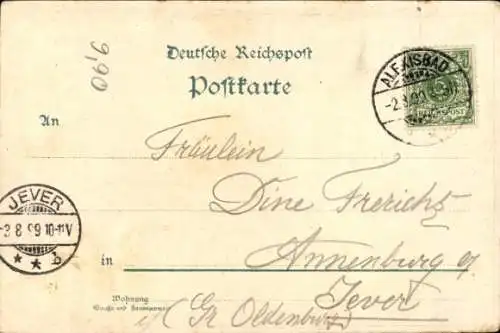 9,90
Deutsche Reichspost
Postkarte
ALEXISBAD
REICHSPOST
An
Fräulein
Dine Frerichs
JEVER
3 8 99 10-11V
* * b
in
Annenburg
Jever
Wohnung
(Straße und Hausnummer)
(Gr. Oldenburg)